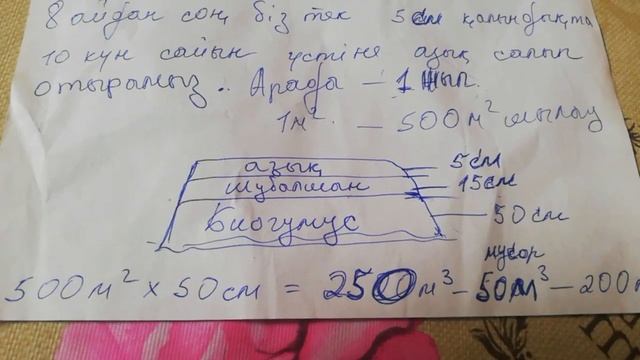 8 айдан соң біз тек 5см қалыңдықта
10 күн сайын үстіне азық салып
отырамыз. Арада – 1 жыл.
1м² – 500м² жылау
азық 5см
шубалшан 15см
Биогумус 50см
мусор
500м² × 50см = 250м³ – 50м³ – 200